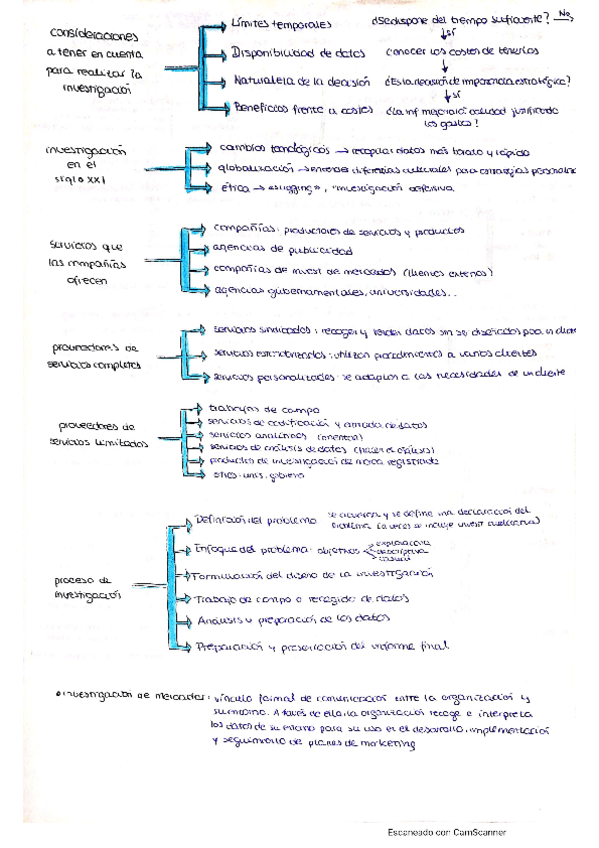 consideraciones
a tener en cuenta
para realizar la
investigación
Límites temporales ¿se dispone del tiempo suficiente? No
↓ sí
Disponibilidad de datos conocer los costes de tenerlos
Naturaleza de la decisión ¿Es la decisión de importancia estratégica?
↓ sí
Beneficios frente a costes ¿La inf mejorará calidad justificando
los gastos?
investigación
en el
siglo XXI
cambios tecnológicos → recopilar datos más barato y rápido
globalización → entender diferencias culturales para estrategias
ética → «sugging», "investigación
servicios que
las compañías
ofrecen
compañías: productores de servicios y productos
agencias de publicidad
compañías de invest de mercados (clientes externos)
agencias gubernamentales, universidades...
proveedores de
servicios completos
servicios sindicados: recoger y vender datos
servicios estandarizados: utilizan procedimientos a varios clientes
servicios personalizados: se adaptan a las necesidades de un cliente
proveedores de
servicios limitados
trabajos de campo
servicios de codificación y entrada de datos
servicios analíticos
servicios de análisis de datos
productos de investigación de marca registrada
otros: unis, gobierno
proceso de
investigación
Definición del problema se acuerda y se define una declaración del
problema (a veces se incluye invest cualitativa)
Enfoque del problema: objetivos
exploratoria
descriptiva
causal
Formulación del diseño de la investigación
Trabajo de campo o recogida de datos
Análisis y preparación de los datos
Preparación y presentación del informe final
investigación de mercados: vínculo formal de comunicación entre la organización y
su entorno. A través de ella la organización recoge e interpreta
los datos de su entorno para su uso en el desarrollo, implementación
y seguimiento de planes de marketing
Escaneado con CamScanner